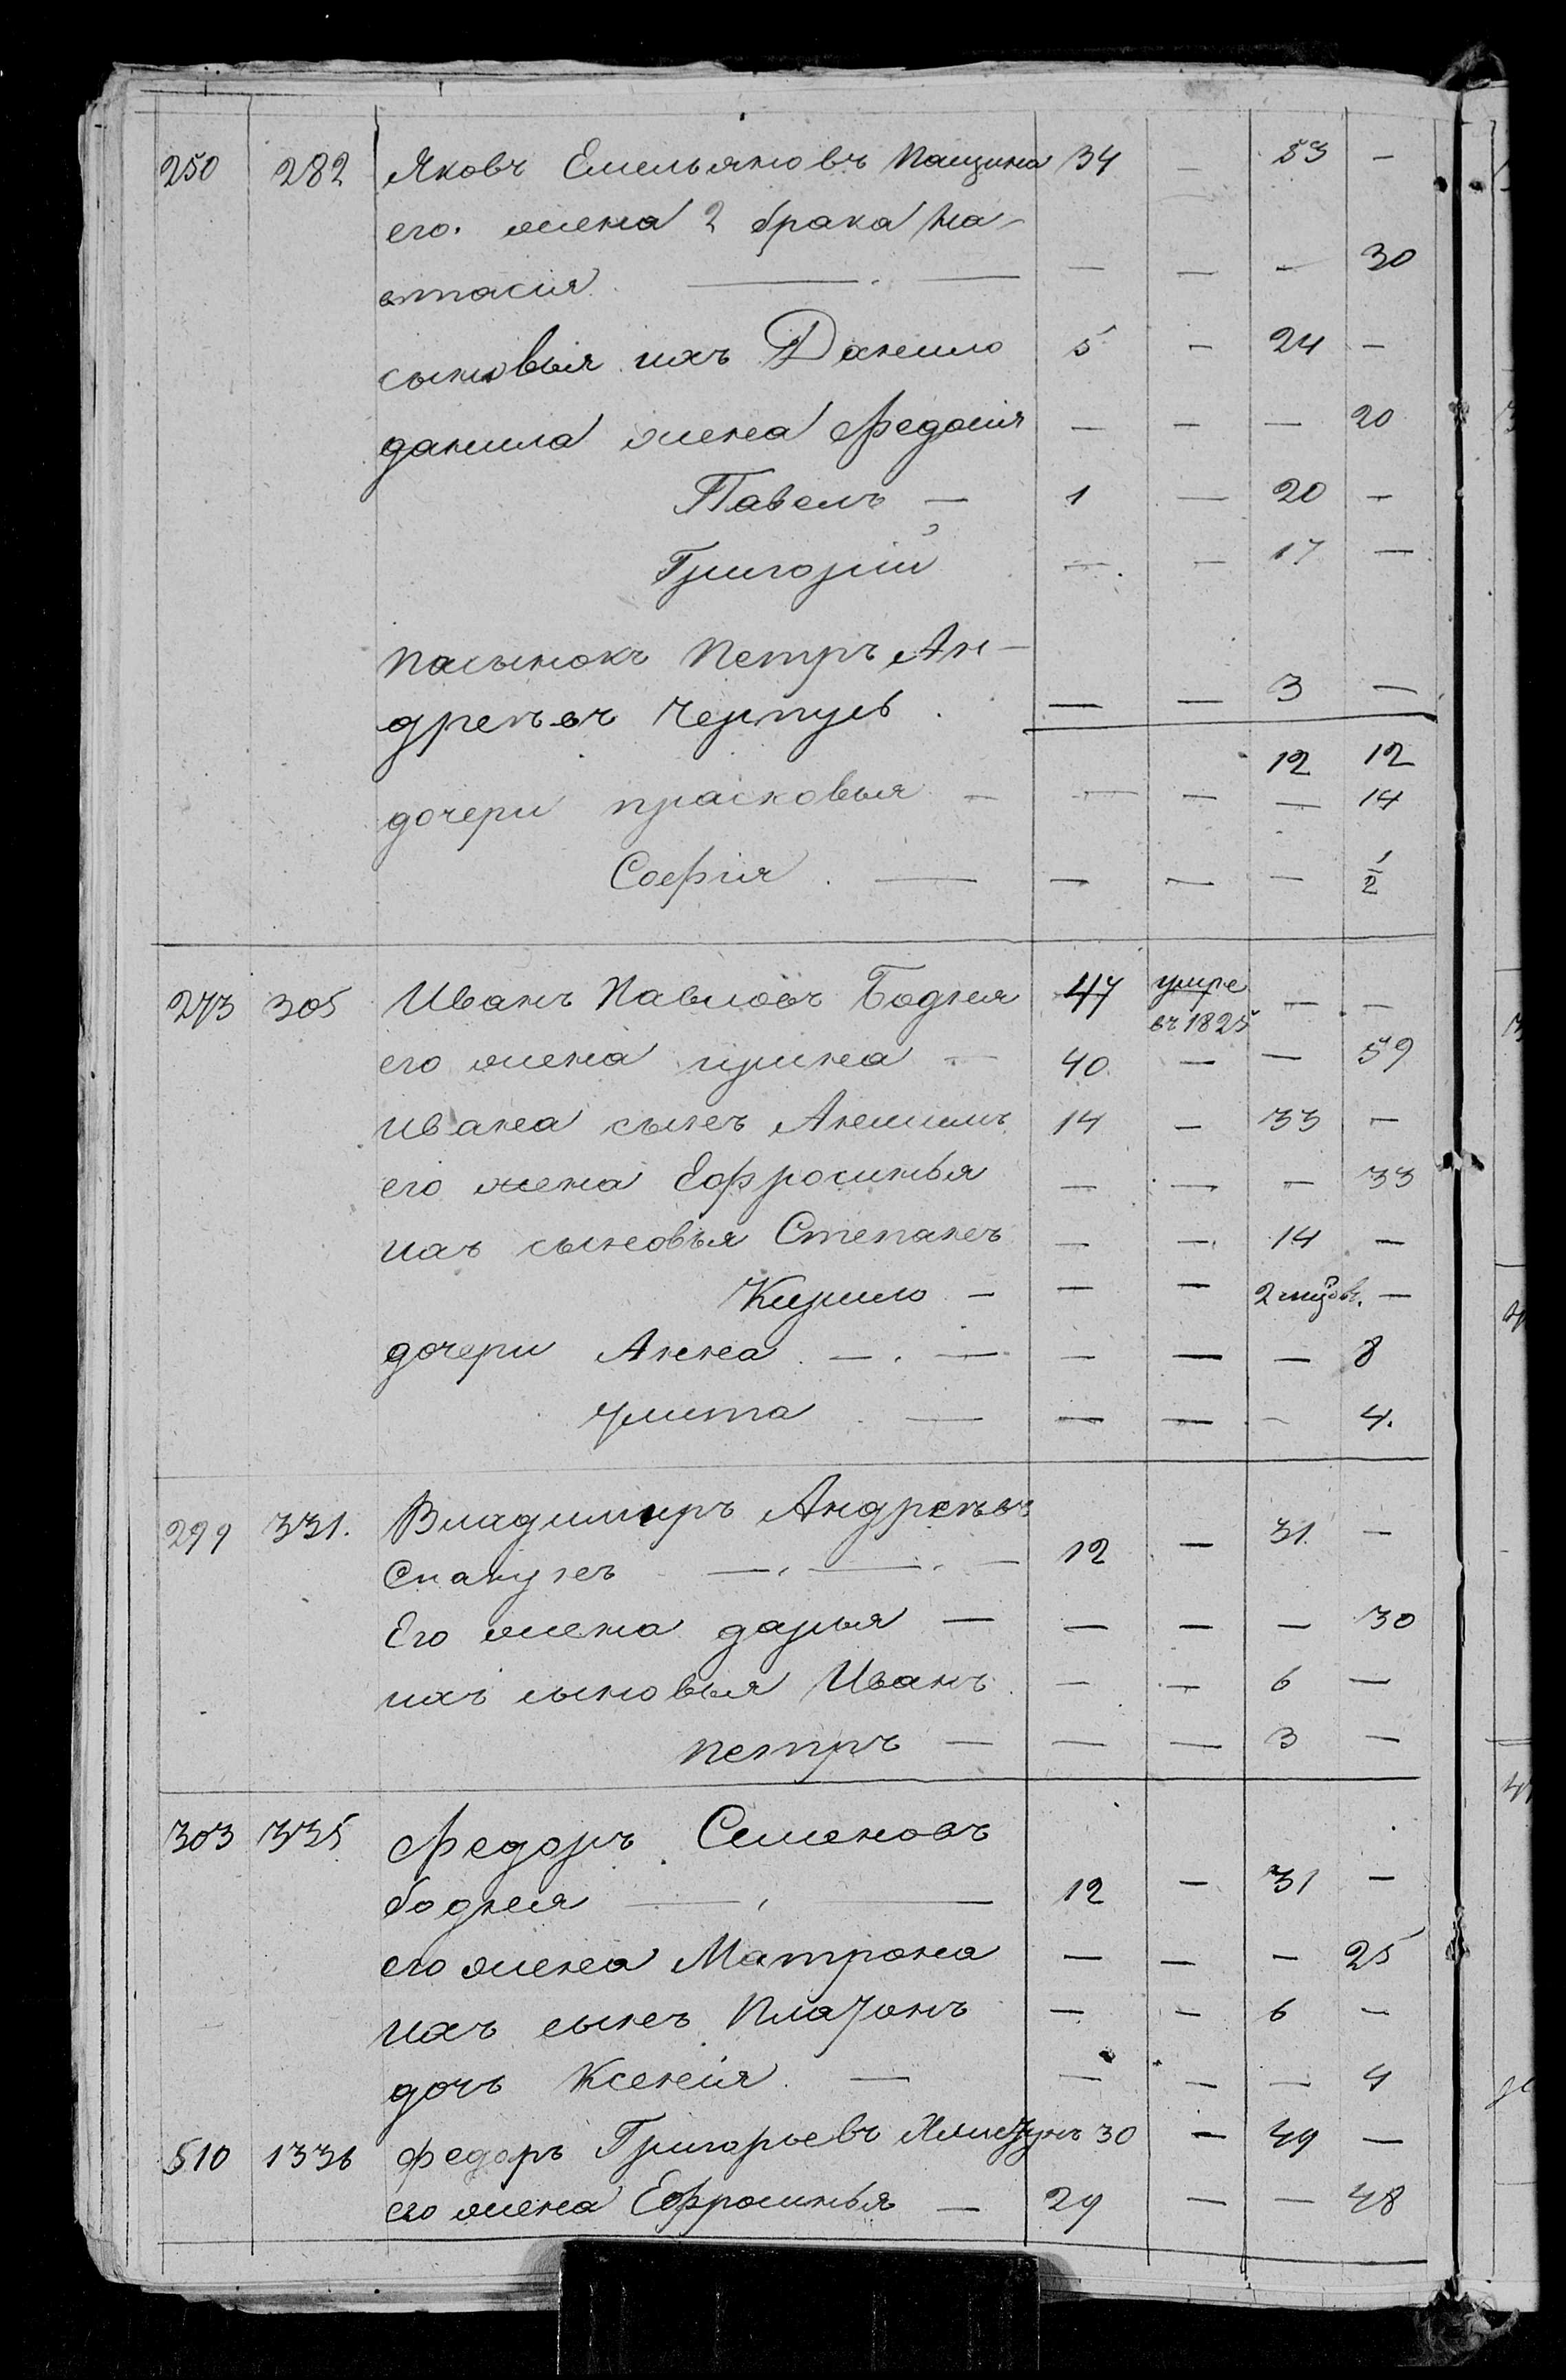 250 282 Яковъ Емельяновъ Пащина 34 — 53 —
его жена 2 брака На-
стасія — — — — 30
сыновья ихъ Данило 5 — 24 —
данила жена Федосия — — — 20
Павелъ — 1 — 20 —
Григорій — — 17 —
пасынокъ Петръ Ан-
дреевъ — — 3 —
12 12
дочери прасковья — — — — 14
Софія — — — — 1/2
273 305 Иванъ Павловъ Бодня 47 умре въ 1825 — —
его жена ирина — 40 — — 59
ивана сынъ 14 — 33 —
его жена Ефросинья — — — 33
ихъ сыновья Степанъ — — 14 —
Кирило — — — 2 —
дочери Анна — — — — — 8
улита — — — — 4.
299 331. Владимиръ Андреевъ
— — 12 — 31 —
Его жена дарья — — — — 30
ихъ сыновья Иванъ — — 6 —
петръ — — — 3 —
303 335 Федоръ Семеновъ
бодня — — 12 — 31 —
его жена Матрона — — — 25
ихъ сынъ Платонъ — — 6 —
дочь Ксенія — — — — 4
510 1336 Федоръ Григорьевъ 30 — 49 —
его жена Ефросинья — 29 — — 48